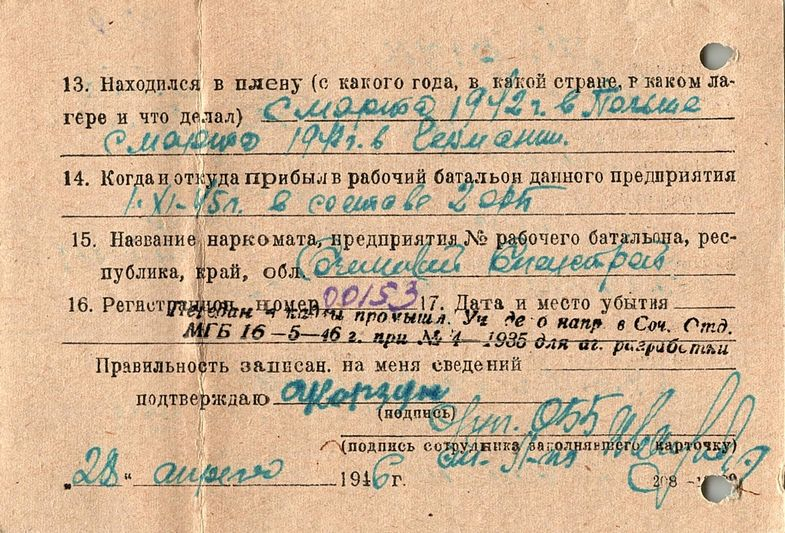 13. Находился в плену (с какого года, в какой стране, в каком ла-
гере и что делал) с марта 1942 г. в Польше
с марта 194 г. в Германии.
14. Когда и откуда прибыл в рабочий батальон данного предприятия
1-XI-45 г. в составе 2
15. Название наркомата, предприятия № рабочего батальона, рес-
публика, край, обл.
16. Регистрацион. номер 00153 17. Дата и место убытия
промышл. Уч. де о напр в Соч. Отд.
МГБ 16-5-46 г. при № 4-1935 для аг. разработки
Правильность записан. на меня сведений
подтверждаю
(подпись)
ОББ
(подпись сотрудника заполнявшего карточку)
"28" апреля 1946 г.